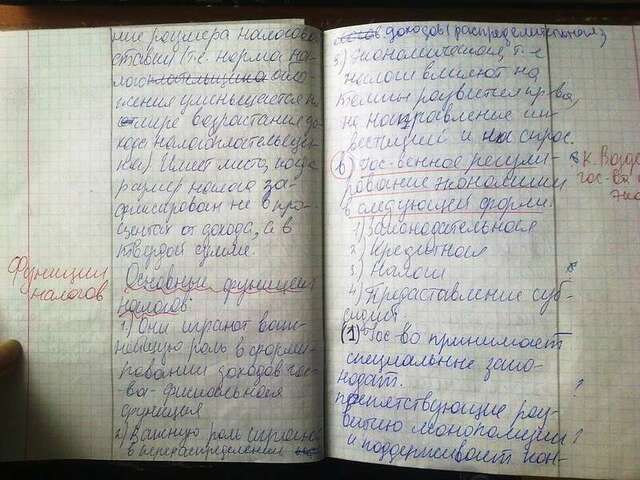 ние размера налогово
ставки (т.е. норма на-
логоплательщика обло-
жения уменьшается п
мере возрастания до-
хода налогоплательщи-
ка) Имеет место, когда
размер налога за-
фиксирован не в про-
центах от дохода, а в
твердой сумме.
Функции
налогов
Основные функции
налогов:
1) Они играют важ-
нейшую роль в форми-
ровании доходов гос-
-ва- фискальная
функция
2) Важную роль играют
в перераспределении
доходов (распределительная)
3) Экономическая, т.к
налоги влияют на
темпы развития пр-ва,
на направление ин-
вестиций и на спрос.
в) Гос-венное регули-
рование экономики
в следующей форме:
1) Законодательная
2) Кредитная
3) Налоги
4) Предоставление суб-
сидий
к. Возде
гос-ва
эко
(1) Гос-во принимает
специальные зако-
нодат.
препятствующие раз-
витию монополизации
и поддерживает кон-
?
?